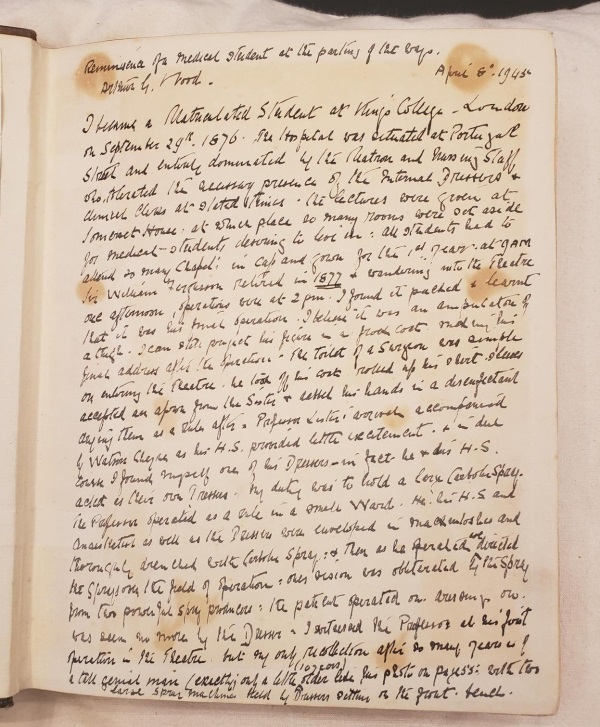 Reminiscence of a Medical Student at the parting of the ways.
Arthur G. Wood. April 8th. 1945
I became a Matriculated Student at King's College - London
on September 29th. 1876. The Hospital was situated at Portugal
Street and entirely dominated by the Matron and Nursing Staff
who tolerated the necessary presence of the Internal Dressers &
Clinical Clerks at stated times. The lectures were given at
Somerset House. at which place so many rooms were set aside
for medical students desiring to live in: all students had to
attend so many Chapels in Cap and gown for the 1st year. at 9 AM
Sir William Fergusson retired in 1877 & wandering into the Theatre
one afternoon, operations were at 2 pm. I found it packed & learnt
that it was his final operation. I believe it was an amputation of
a thigh. I can still project his figure in a frock coat making his
final address after the operation. The toilet of a Surgeon was simple
on entering the Theatre. he took off his coat rolled up his shirt sleeves
accepted an apron from the Sister & washed his hands in a disinfectant
drying them as a rule after. Professor Lister's arrival accompanied
by Watson Cheyne as his H.S. provided little excitement. & in due
course I found myself one of his Dressers - in fact he & his H.S.
acted as their own Dressers. My duty was to hold a large Carbolic Spray.
the Professor operated as a rule in a small Ward. He: his H.S and
Anaesthetist as well as the Dressers were enveloped in mackintoshes and
thoroughly drenched with Carbolic Spray: & then as he operated we directed
the Sprays on the field of operation: ones vision was obliterated by the Spray
from two powerful spray producers: the patient operated on. dressings on.
was seen no more by the Dresser. I witnessed the Professor at his first
operation in the Theatre. but my only recollection after so many years is of
a tall genial man (exactly only a little older (10 years) like his photo on page 5: with two
large Spray machines held by Dressers sitting on the front bench.